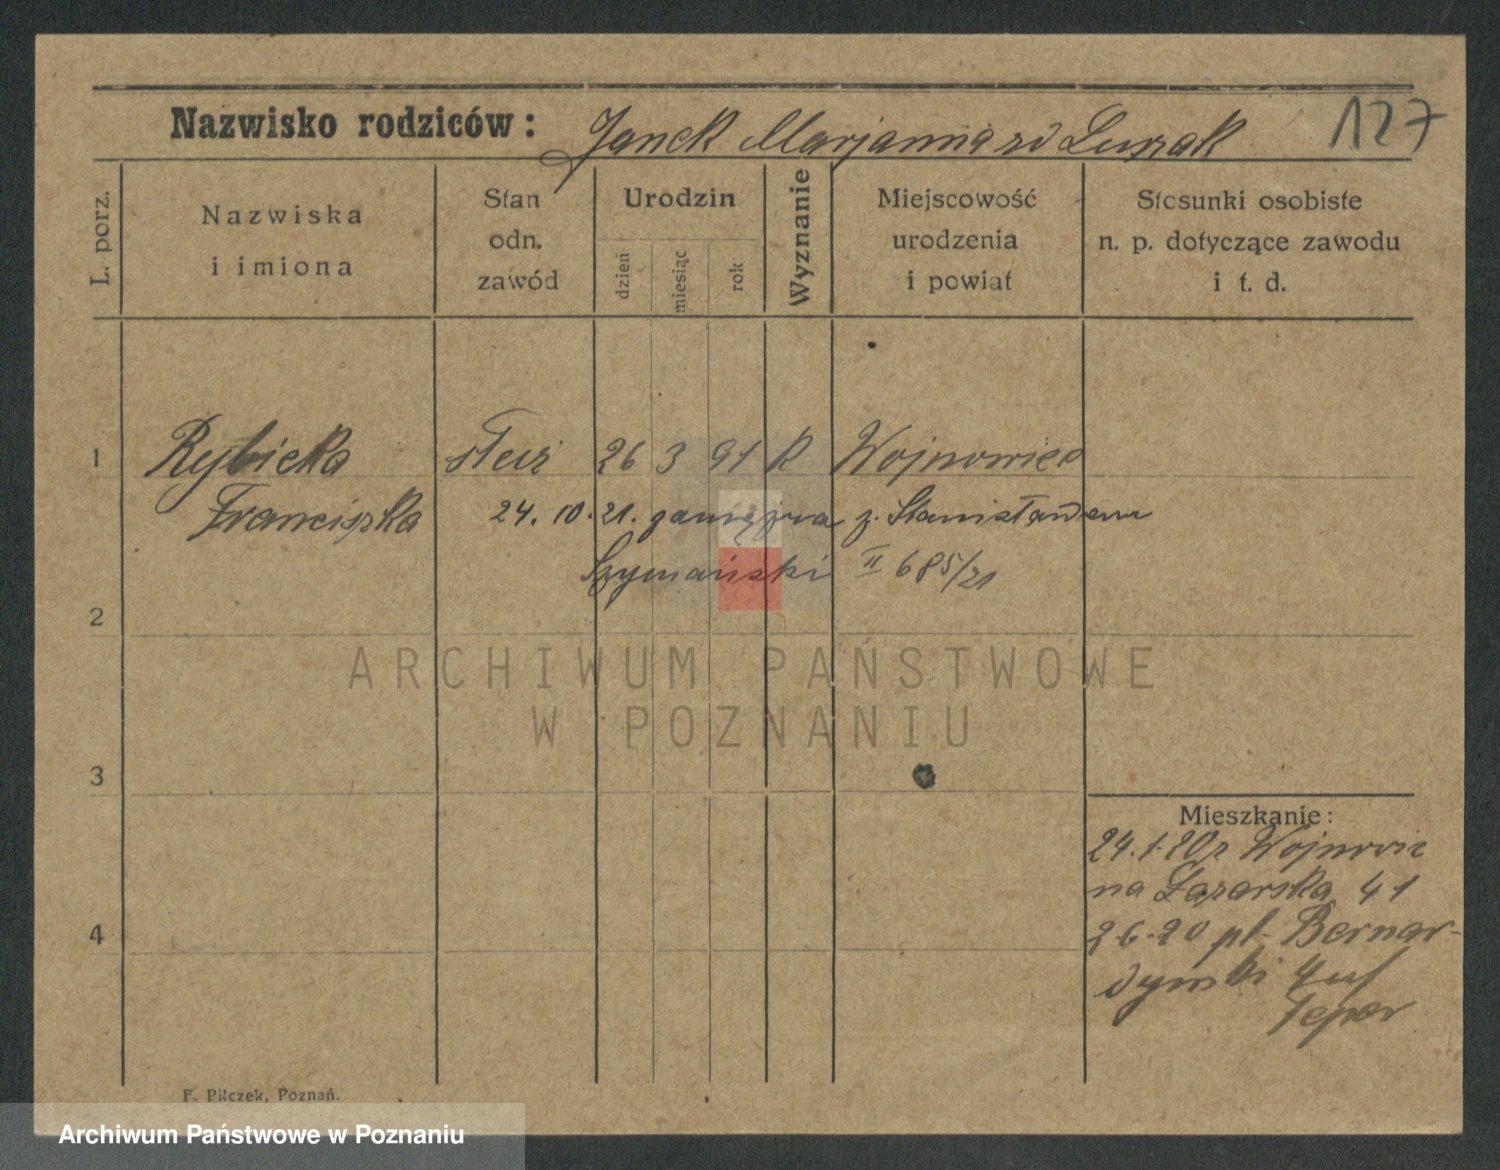 Nazwisko rodziców: Janek Marjanna zd Luzak 127
L. porz.
Nazwiska
i imiona
Stan
odn.
zawód
Urodzin
dzień
miesiąc
rok
Wyznanie
Miejscowość
urodzenia
i powiat
Stosunki osobiste
n. p. dotyczące zawodu
i t. d.
1 Rybicka 26 3 91 R Wojnowice
Franciszka 24. 10. 21. z. Stanisławem
Szymański II 685/21
2
ARCHIWUM PAŃSTWOWE
W POZNANIU
3
Mieszkanie:
24.1.20
na Łazarska 41
4
2.6.20 pl. Bernar-
dyński 4
F. Pilczek, Poznań.
Archiwum Państwowe w Poznaniu